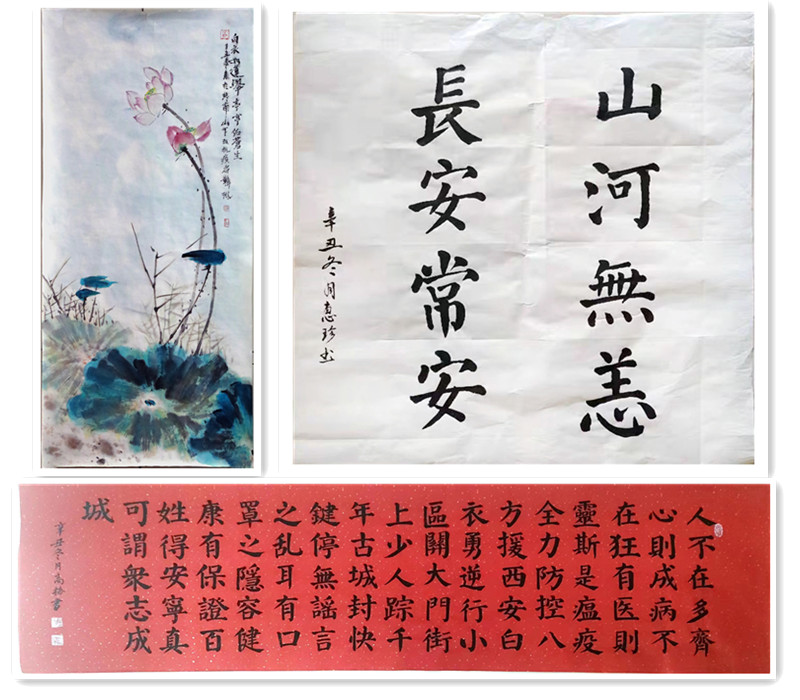 山河無恙
長安常安
辛丑冬周惠珍书
人不在多齊
心則成病不
在狂有医則
靈斯是瘟疫
全力防控八
方援西安白
衣勇逆行小
區關大門街
上少人踪千
年古城封快
鍵停無謡言
之乱耳有口
罩之隱容健
康有保證百
姓得安寧真
可謂衆志成
城
辛丑冬月高書